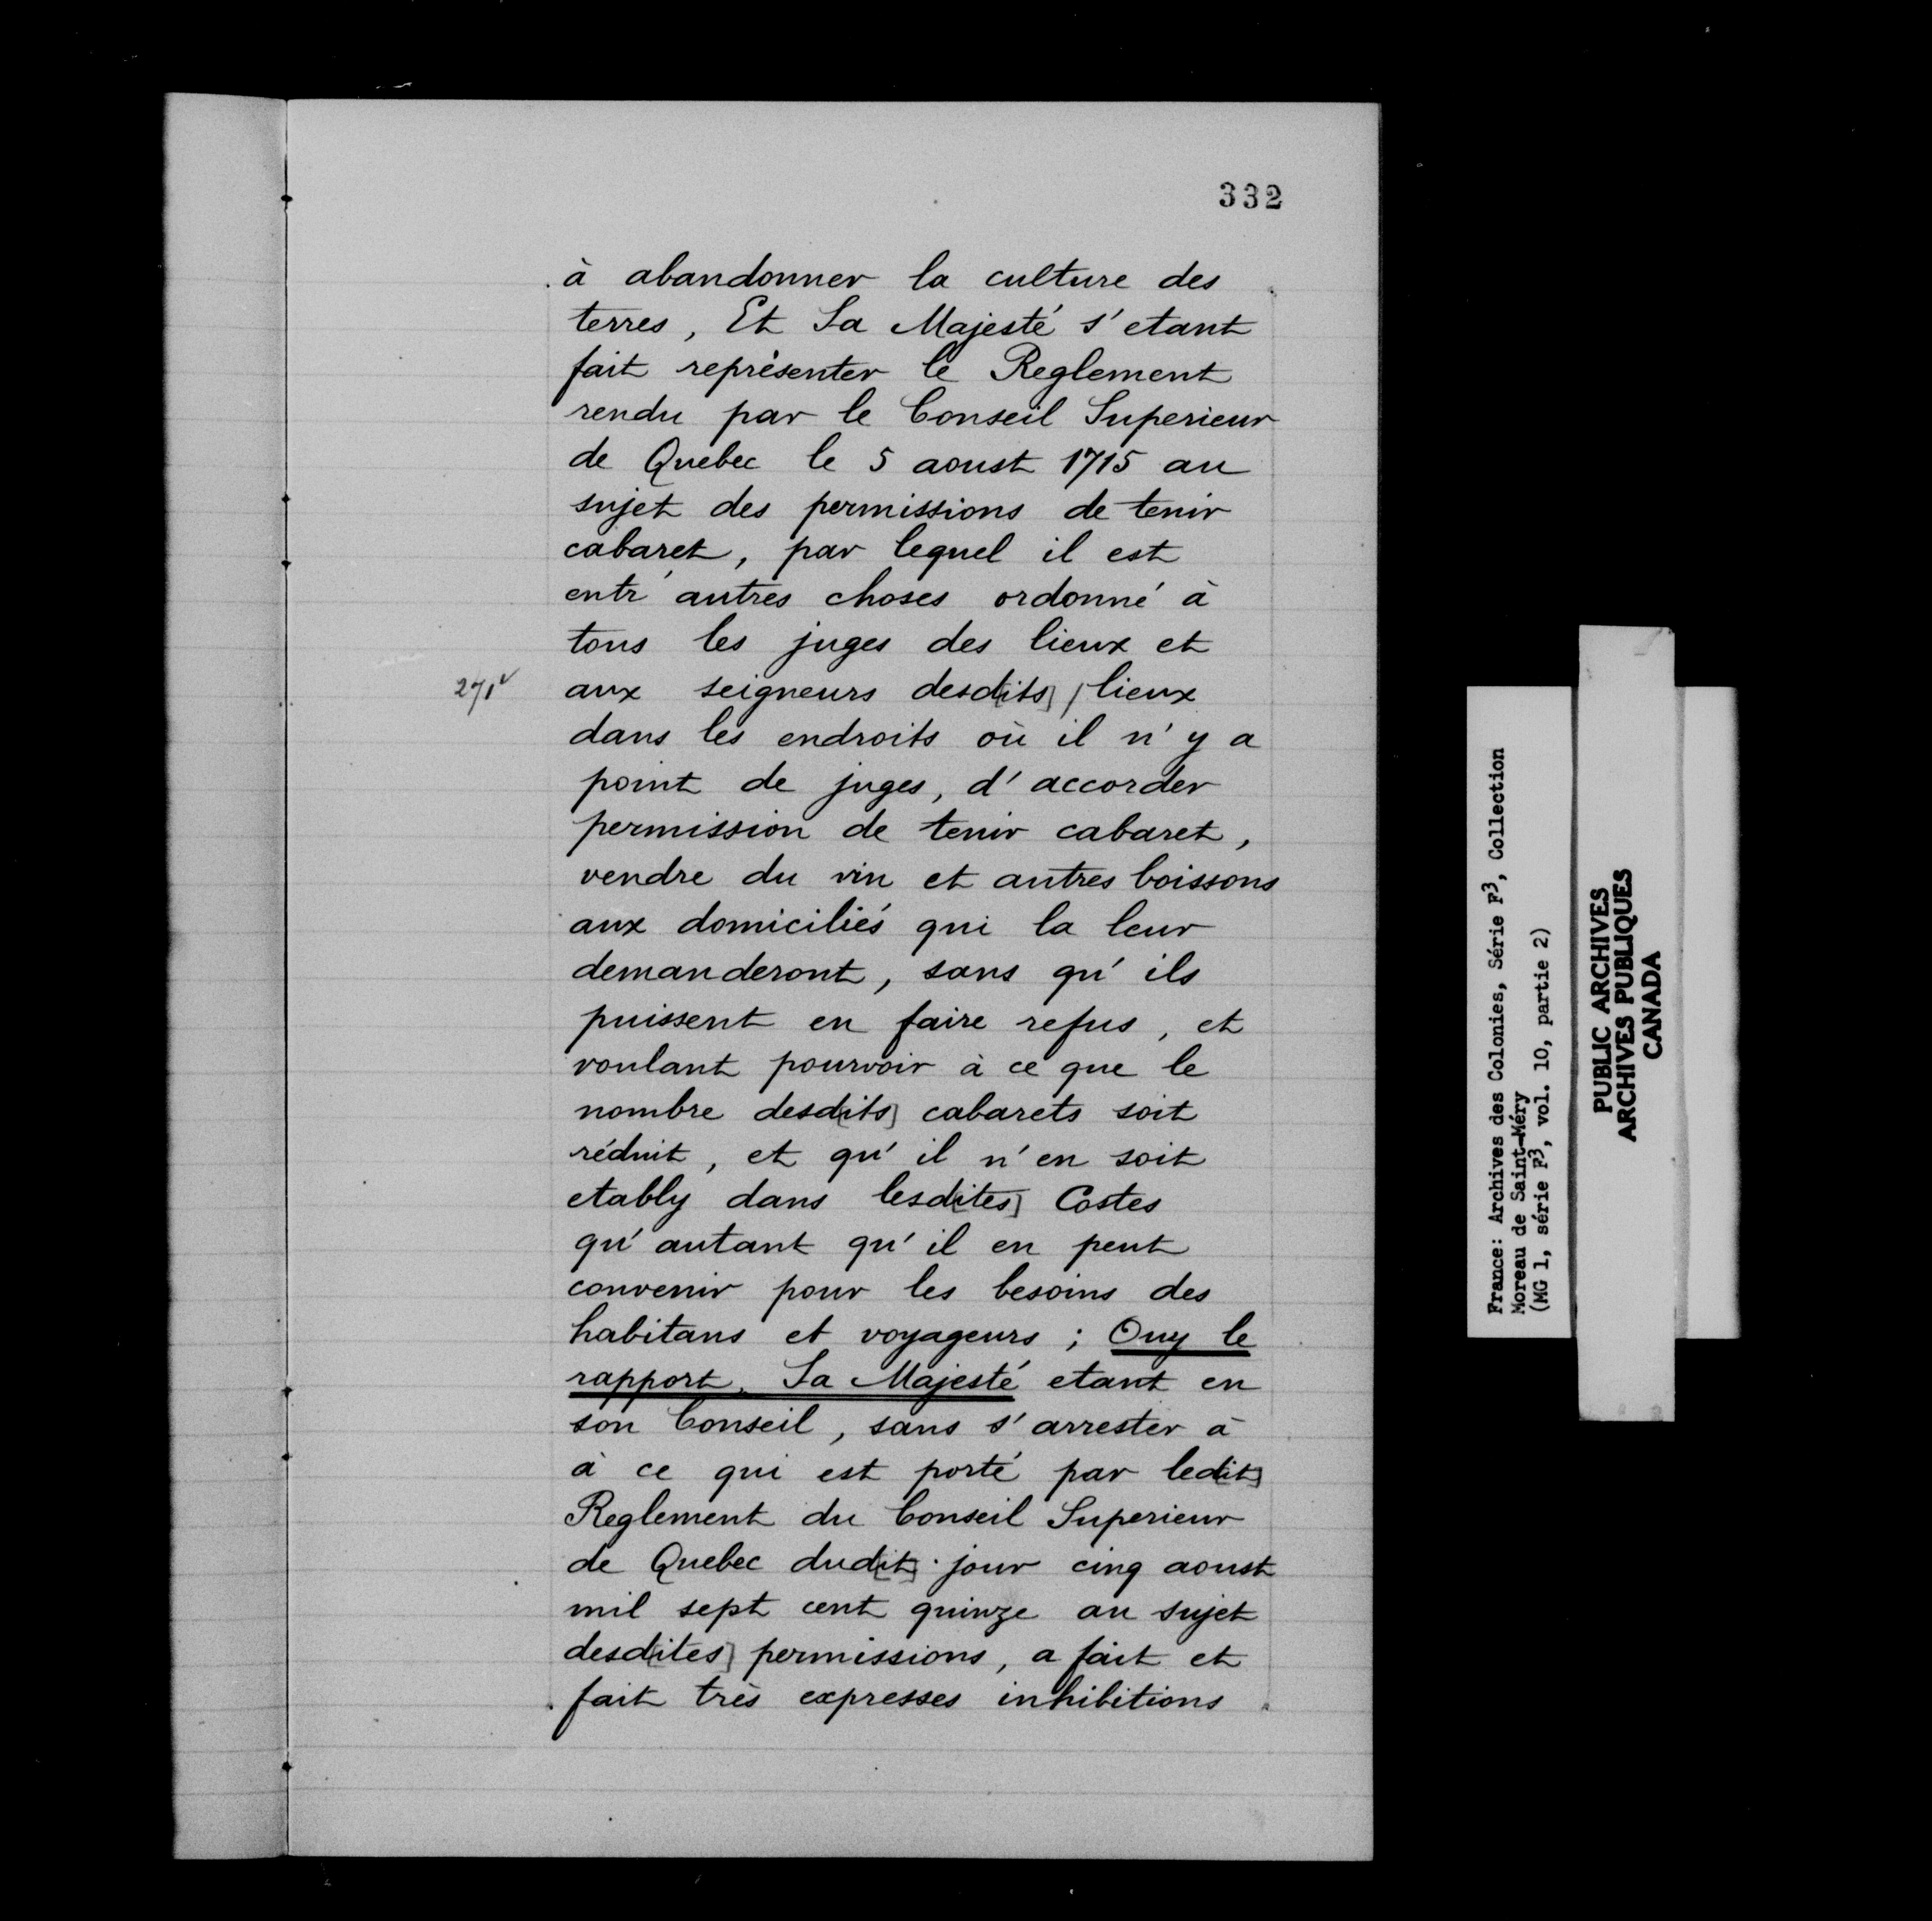 332
à abandonner la culture des
terres, Et Sa Majesté s'etant
fait représenter le Reglement
rendu par le Conseil Superieur
de Quebec le 5 aoust 1715 au
sujet des permissions de tenir
cabaret, par lequel il est
entr'autres choses ordonné à
tous les juges des lieux et
271v aux seigneurs desd[its] / lieux
dans les endroits où il n'y a
point de juges, d'accorder
permission de tenir cabaret,
vendre du vin et autres boissons
aux domiciliés qui la leur
demanderont, sans qu'ils
puissent en faire refus, et
voulant pourvoir à ce que le
nombre desd[its] cabarets soit
réduit, et qu'il n'en soit
etably dans lesd[ites] Costes
qu'autant qu'il en peut
convenir pour les besoins des
habitans et voyageurs ; Ouy le
rapport, Sa Majesté etant en
son Conseil, sans s'arrester à
à ce qui est porté par led[it]
Reglement du Conseil Superieur
de Quebec dud[it] jour cinq aoust
mil sept cent quinze au sujet
desd[ites] permissions, a fait et
fait très expresses inhibitions
France: Archives des Colonies, Série F3, Collection
Moreau de Saint-Méry
(MG 1, série F3, vol. 10, partie 2)
PUBLIC ARCHIVES
ARCHIVES PUBLIQUES
CANADA